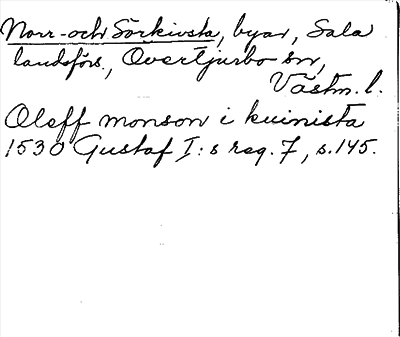 Norr- och Sörkivsta, byar, Sala
landsförs., Övertjurbo sn,
Västm. l.
Oleff monson i kuinista
1530 Gustaf I:s reg. 7, s. 145.